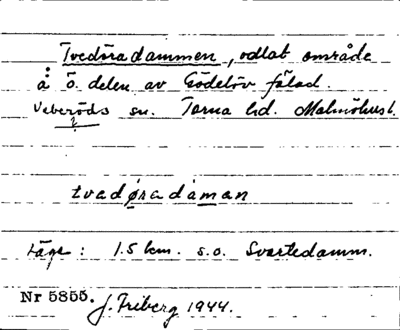 Tvedöradammen, odlat område
å ö. delen av Gödelöv fälad.
Veberöds sn. Torna hd. Malmöhus l.
tvadøradåman
Läge: 1.5 km. s.o. Svartedamm.
Nr 5855. J. Friberg 1944.